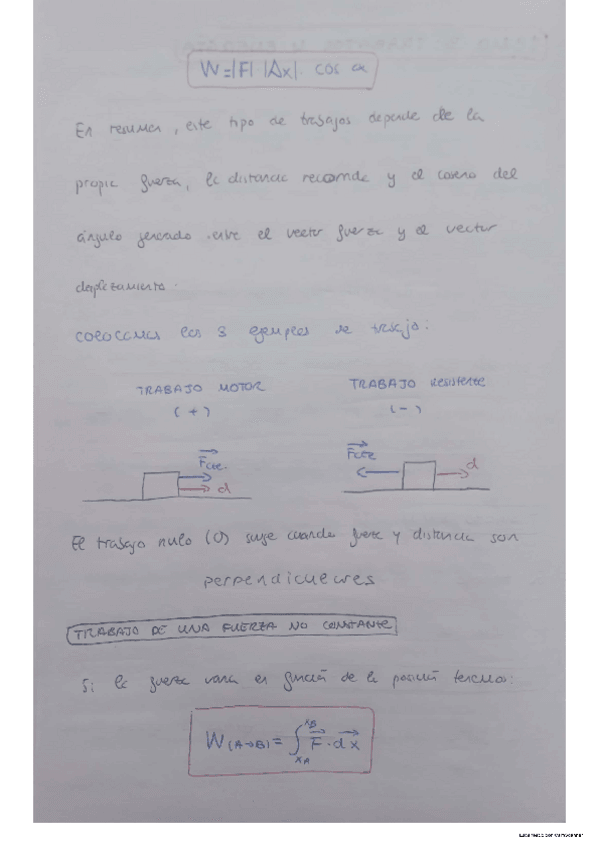 W=|F| |Δx|. cos α
En resumen, este tipo de trabajos depende de la
propia fuerza, la distancia recorrida y el coseno del
ángulo generado entre el vector fuerza y el vector
desplazamiento.
colocamos los 3 ejemplos de trabajo:
TRABAJO MOTOR
(+)
TRABAJO Resistente
(-)
Fcte.
d
Fcte
d
El trabajo nulo (0) surge cuando fuerza y distancia son
perpendiculares
TRABAJO DE UNA FUERZA NO CONSTANTE
Si la fuerza varia en función de la posición tenemos:
W(A→B) = ∫ xA xB F · dx